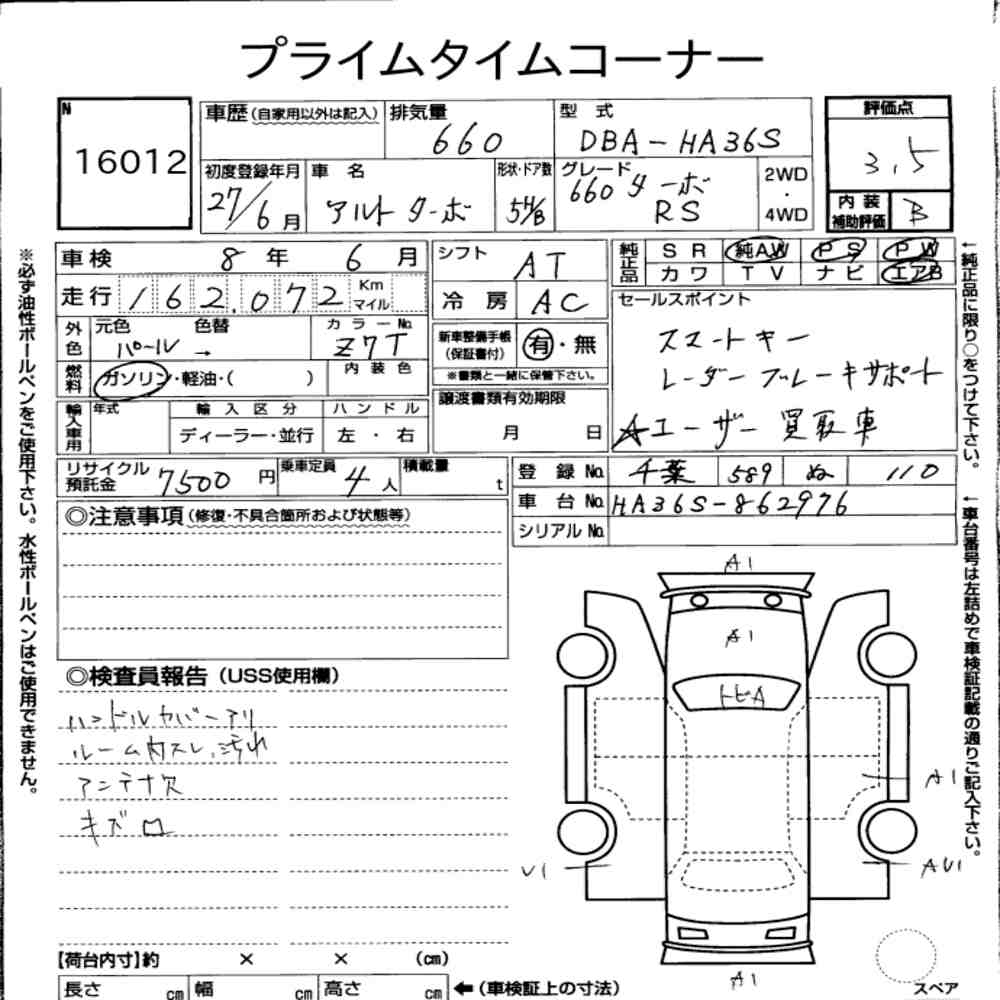 プライムタイムコーナー
N
16012
車歴 (自家用以外は記入)
排気量
660
型 式
DBA-HA36S
評価点
3,5
初度登録年月
27/6月
車 名
アルト ターボ
形状・ドア数
5H/B
グレード
660 ターボ
RS
2WD
・
4WD
内 装
補助評価
B
車検 8 年 6 月
シフト
AT
純正品
S R 純AW P S P W
カ ワ T V ナ ビ エアB
走行 162.072 Km
マイル
冷 房 AC
セールスポイント
スマートキー
レーダーブレーキサポート
★ユーザー買取車
外色
元色 色替
パール →
カラーNo.
Z7T
新車整備手帳
(保証書付)
有・無
※書類と一緒に保管下さい。
燃料
ガソリン・軽油・( )
内 装 色
譲渡書類有効期限
月 日
輸入車用
年式
輸 入 区 分
ハ ン ド ル
ディーラー・並行
左 ・ 右
リサイクル
預託金
7500 円
乗車定員
4 人
積載量
t
登 録 No. 千葉 589 ぬ 110
車 台 No. HA36S-862976
シリアル No.
◎注意事項 (修復・不具合箇所および状態等)
◎検査員報告 (USS使用欄)
ハンドルカバーアリ
ルーム内スレ、汚れ
アンテナ欠
キズロ
A1
A1
トビA
A1
U1
AU1
A1
スペア
【荷台内寸】約 × × (cm)
長さ cm 幅 cm 高さ cm ←(車検証上の寸法)
※必ず油性ボールペンをご使用下さい。水性ボールペンはご使用できません。
←純正品に限り○をつけて下さい。
←車台番号は左詰めで車検証記載の通りご記入下さい。